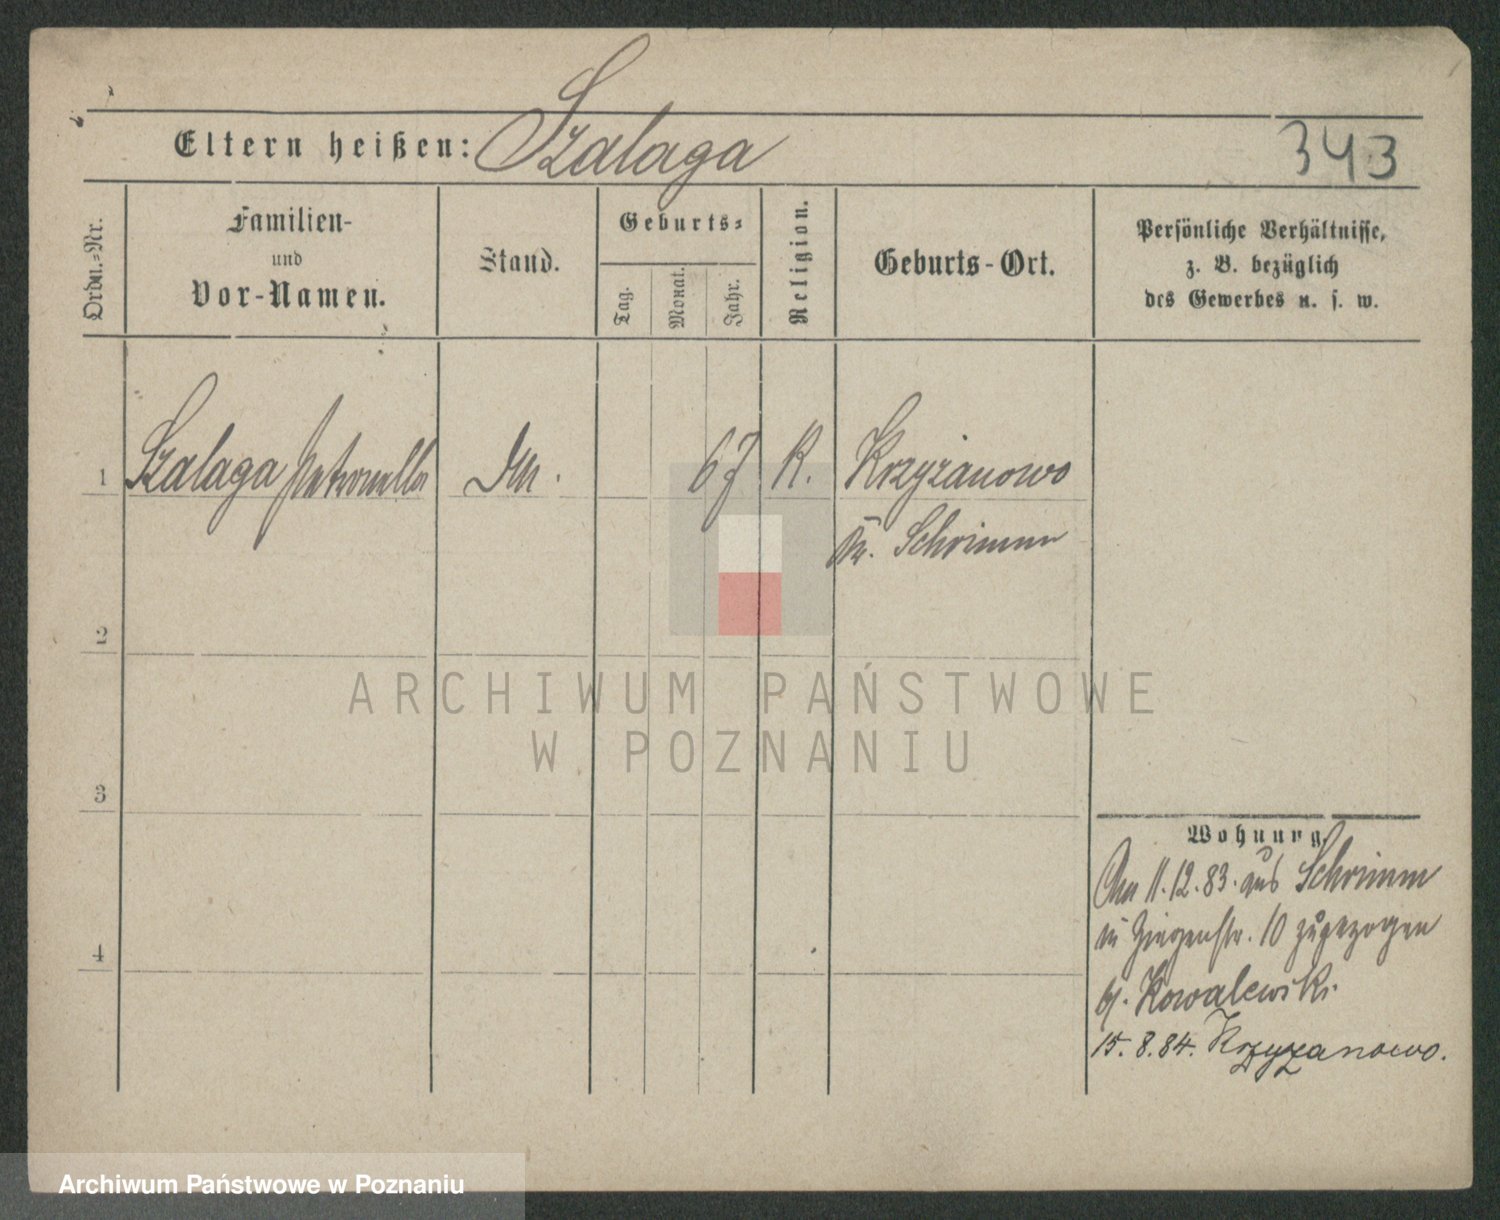 Eltern heißen: Szalaga
343
Ordn.=Nr.
Familien-
und
Vor-Namen.
Stand.
Geburts=
Tag.
Monat.
Jahr.
Religion.
Geburts-Ort.
Persönliche Verhältnisse,
z. B. bezüglich
des Gewerbes u. s. w.
1 Szalaga Petronella
67 K. Krzyżanowo
Kr. Schrimm
2
3
4
Wohnung.
Am 11.12.83. aus Schrimm
in Ziegenstr. 10 zugezogen
b/. Kowalewski.
15.8.84. Krzyzanowo.
ARCHIWUM PAŃSTWOWE
W POZNANIU
Archiwum Państwowe w Poznaniu